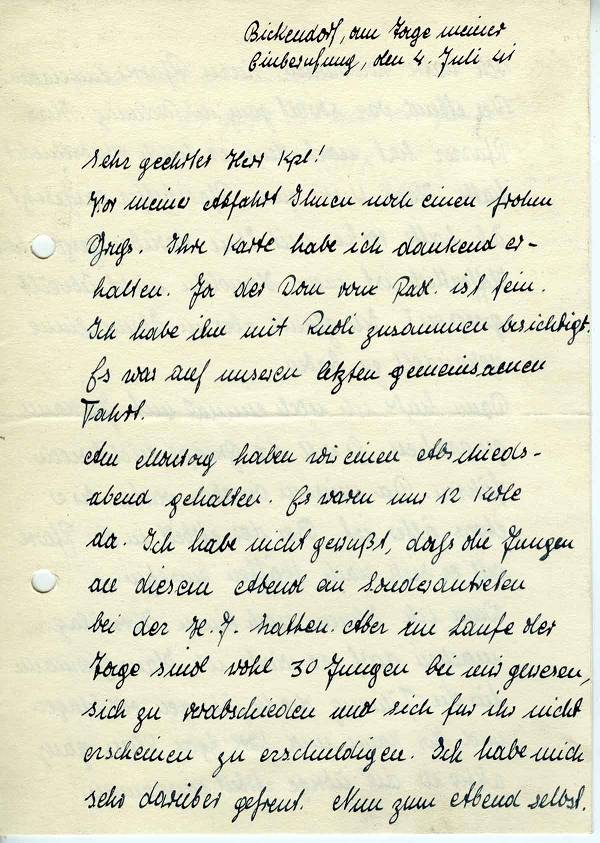 Bickendorf, am Tage meiner
Einberufung, den 4. Juli 41
Sehr geehrter Herr Kpl!
Vor meiner Abfahrt Ihnen noch einen frohen
Gruß. Ihre Karte habe ich dankend er-
halten. Ja der Dom von Pad. ist fein.
Ich habe ihn mit Rudi zusammen besichtigt.
Es war auf unseren letzten gemeinsamen
Fahrt.
Am Montag haben wir einen Abschieds-
abend gehalten. Es waren nur 12 Kerle
da. Ich habe nicht gewußt, daß die Jungen
an diesem Abend ein Sonderantreten
bei der H.J. hatten. Aber im Laufe der
Tage sind wohl 30 Jungen bei mir gewesen,
sich zu verabschieden und sich für ihr nicht
erscheinen zu erschuldigen. Ich habe mich
sehr darüber gefreut. Nun zum Abend selbst.